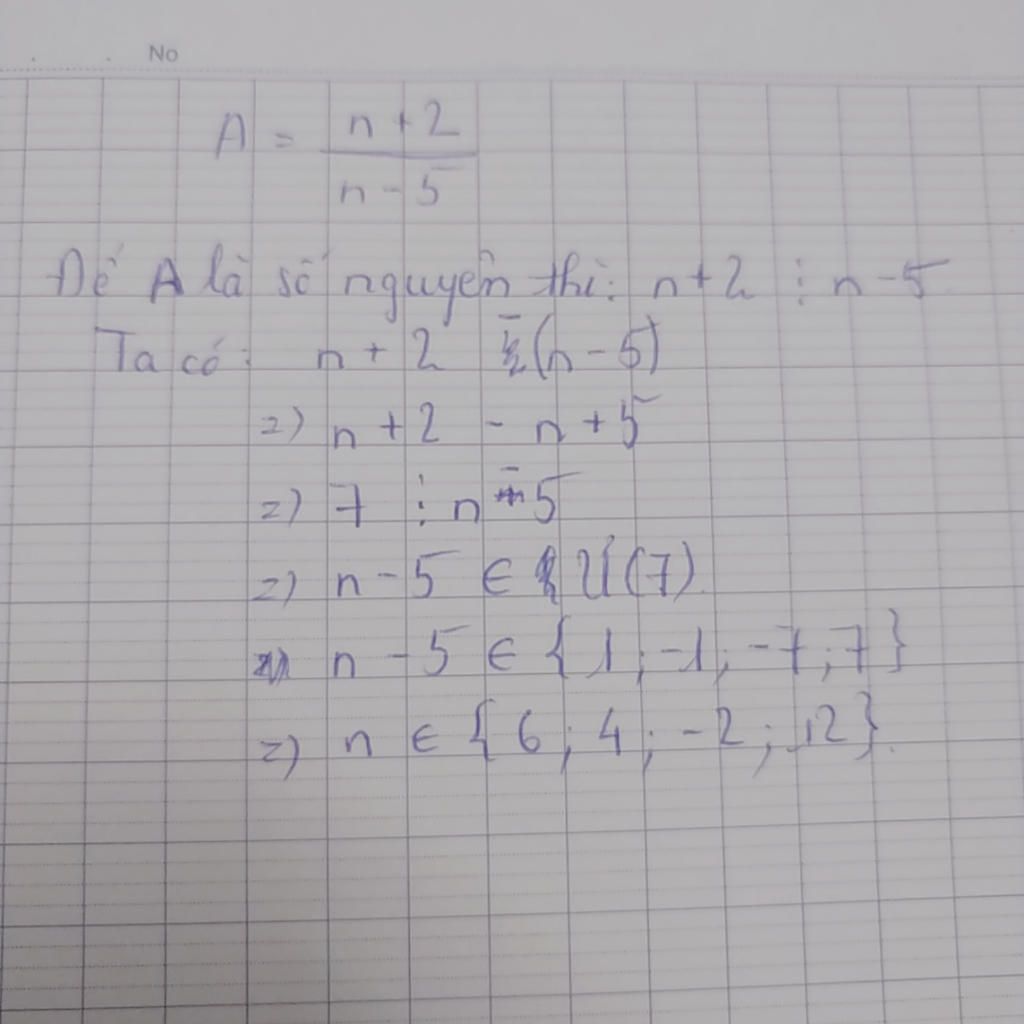 No
A = n + 2 / n - 5
Để A là số nguyên thì: n + 2 ⋮ n - 5
Ta có: n + 2 - (n - 5)
=) n + 2 - n + 5
=) 7 ⋮ n - 5
=) n - 5 ∈ Ư(7).
=) n - 5 ∈ { 1 ; -1 ; -7 ; 7 }
=) n ∈ { 6 ; 4 ; -2 ; 12 }.